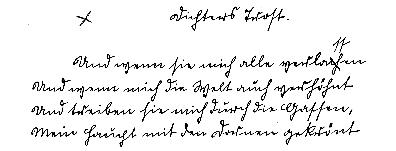 Dichters Trost.
Und wenn sie mich alle verlassen
Und wenn mich die Welt auch verhöhnt
Und treiben sie mich durch die Gassen,
Mein Haupt mit den Dornen gekrönt